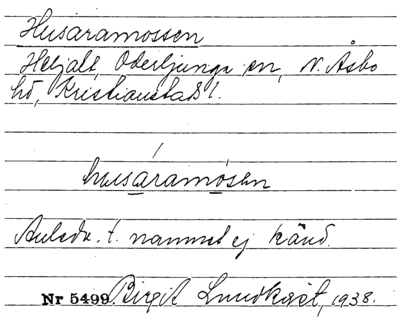 Husaramossen
Heljalt, Oderljunga sn, N. Åsbo
hd, Kristianstads l.
husaramosen
Anledn. t. namnet ej känd.
Nr 5499 Birgit Lundkvist, 1938.